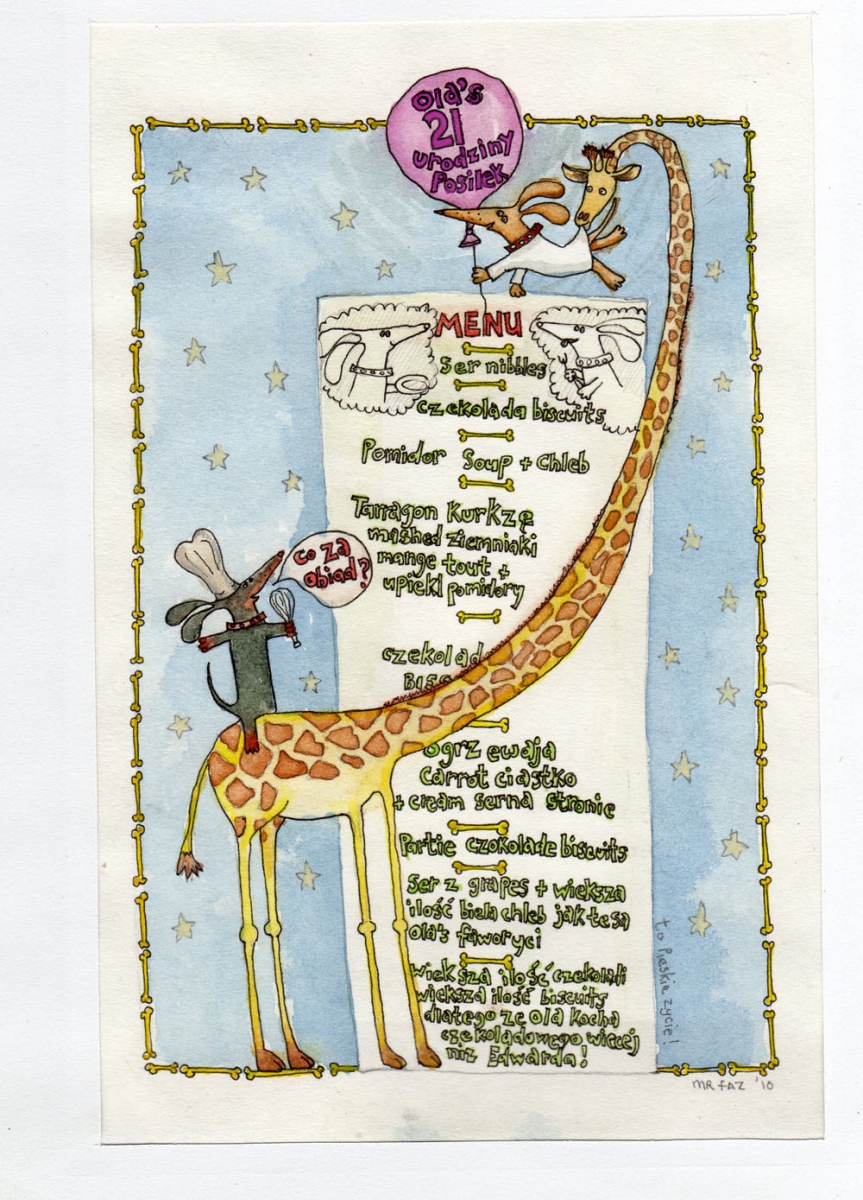 Ola's
21
urodziny
Posilek
MENU
Ser nibbles
czekolada biscuits
Pomidor Soup + Chleb
Tarragon Kurkzę
mashed ziemniaki
mange tout +
upiekl pomidory
co za
obiad?
czekolad
Biss
Ogrzewaja
Carrot ciastko
+ cream serna stronie
Partie czokolade biscuits
Ser z grapes + wieksza
ilość biela chleb jak te sa
Ola's faworyci
wieksza ilość czekoladi
wieksza ilość biscuits
dlatego ze Ola kocha
czekoladowego wiecej
niz Edwarda!
to Pieskie zycie!
MR FAZ '10